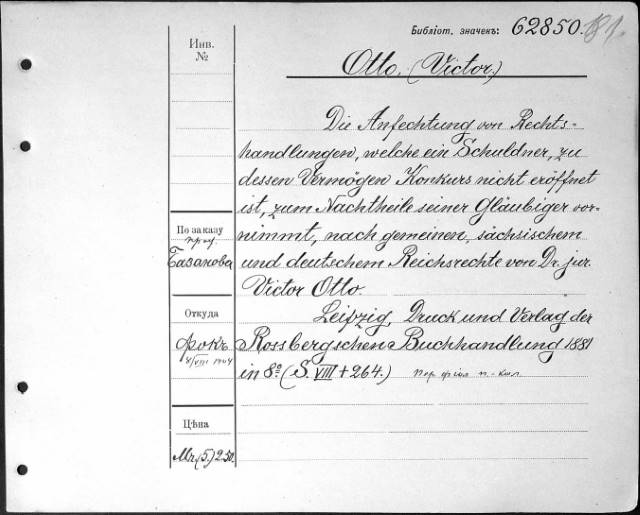 Библіот. значекъ: 62850.
Инв.
№
Otto. (Victor.)
Die Anfechtung von Rechts-
handlungen, welche ein Schuldner, zu
dessen Vermögen Konkurs nicht eröffnet
ist, zum Nachtheile seiner Gläubiger vor-
nimmt, nach gemeinen, sächsischem
und deutschem Reichsrechte von Dr. jur.
Victor Otto.
Leipzig, Druck und Verlag der
Rossbergschen Buchhandlung 1881
in 8º (S. VIII + 264.)
По заказу
проф.
Базанова
Откуда
Фокъ
4/VIII 1904
Цѣна
Mr. (5.) 2.50.